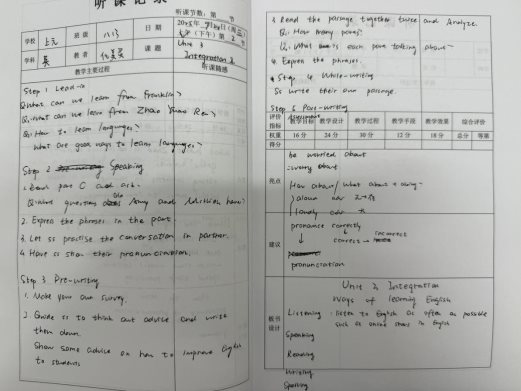 听课记录
听课节数：第 节
学校 上元 班级 八(3) 日期
学科 英 教者 课题 Unit 3
Integration
教学主要过程 听课随感
Step 1 Lead-in
Q: What can we learn from Franklin?
Q: What can we learn from Zhao Yuan Ren?
Q: How to learn languages?
What are good ways to learn languages?
Step 2 Speaking
1. Read part C and ask.
Q: What questions does Amy and have?
2. Express the phrases in the part.
3. Let ss practise the conversation in partner.
4. Have ss show their pronunciation.
Step 3 Pre-writing
1. Make your own survey.
2. Guide ss to think out advice and write
them down.
Show some advice on how to improve English
to students
3. Read the passage together twice and Analyze.
Q: How many paras?
Q: What is each para talking about?
4. Express the phrases.
Step 4 While-writing
Ss write their own passage.
Step 5 Post-writing
Assessment
评价指标 教学目标 教学设计 教学过程 教学手段 教学效果 综合评价
权重 16分 24分 30分 12分 18分 总分 等第
得分
亮点
be worried about
worry about
How about / What about + doing
aloud adv
loudly adv
建议
pronounce correctly
correct → incorrect
pronunciation
板书设计
Unit 3 Integration
Ways of learning English
Listening: listen to English as often as possible
such as online shows in English
Speaking
Reading
Writing
Spelling